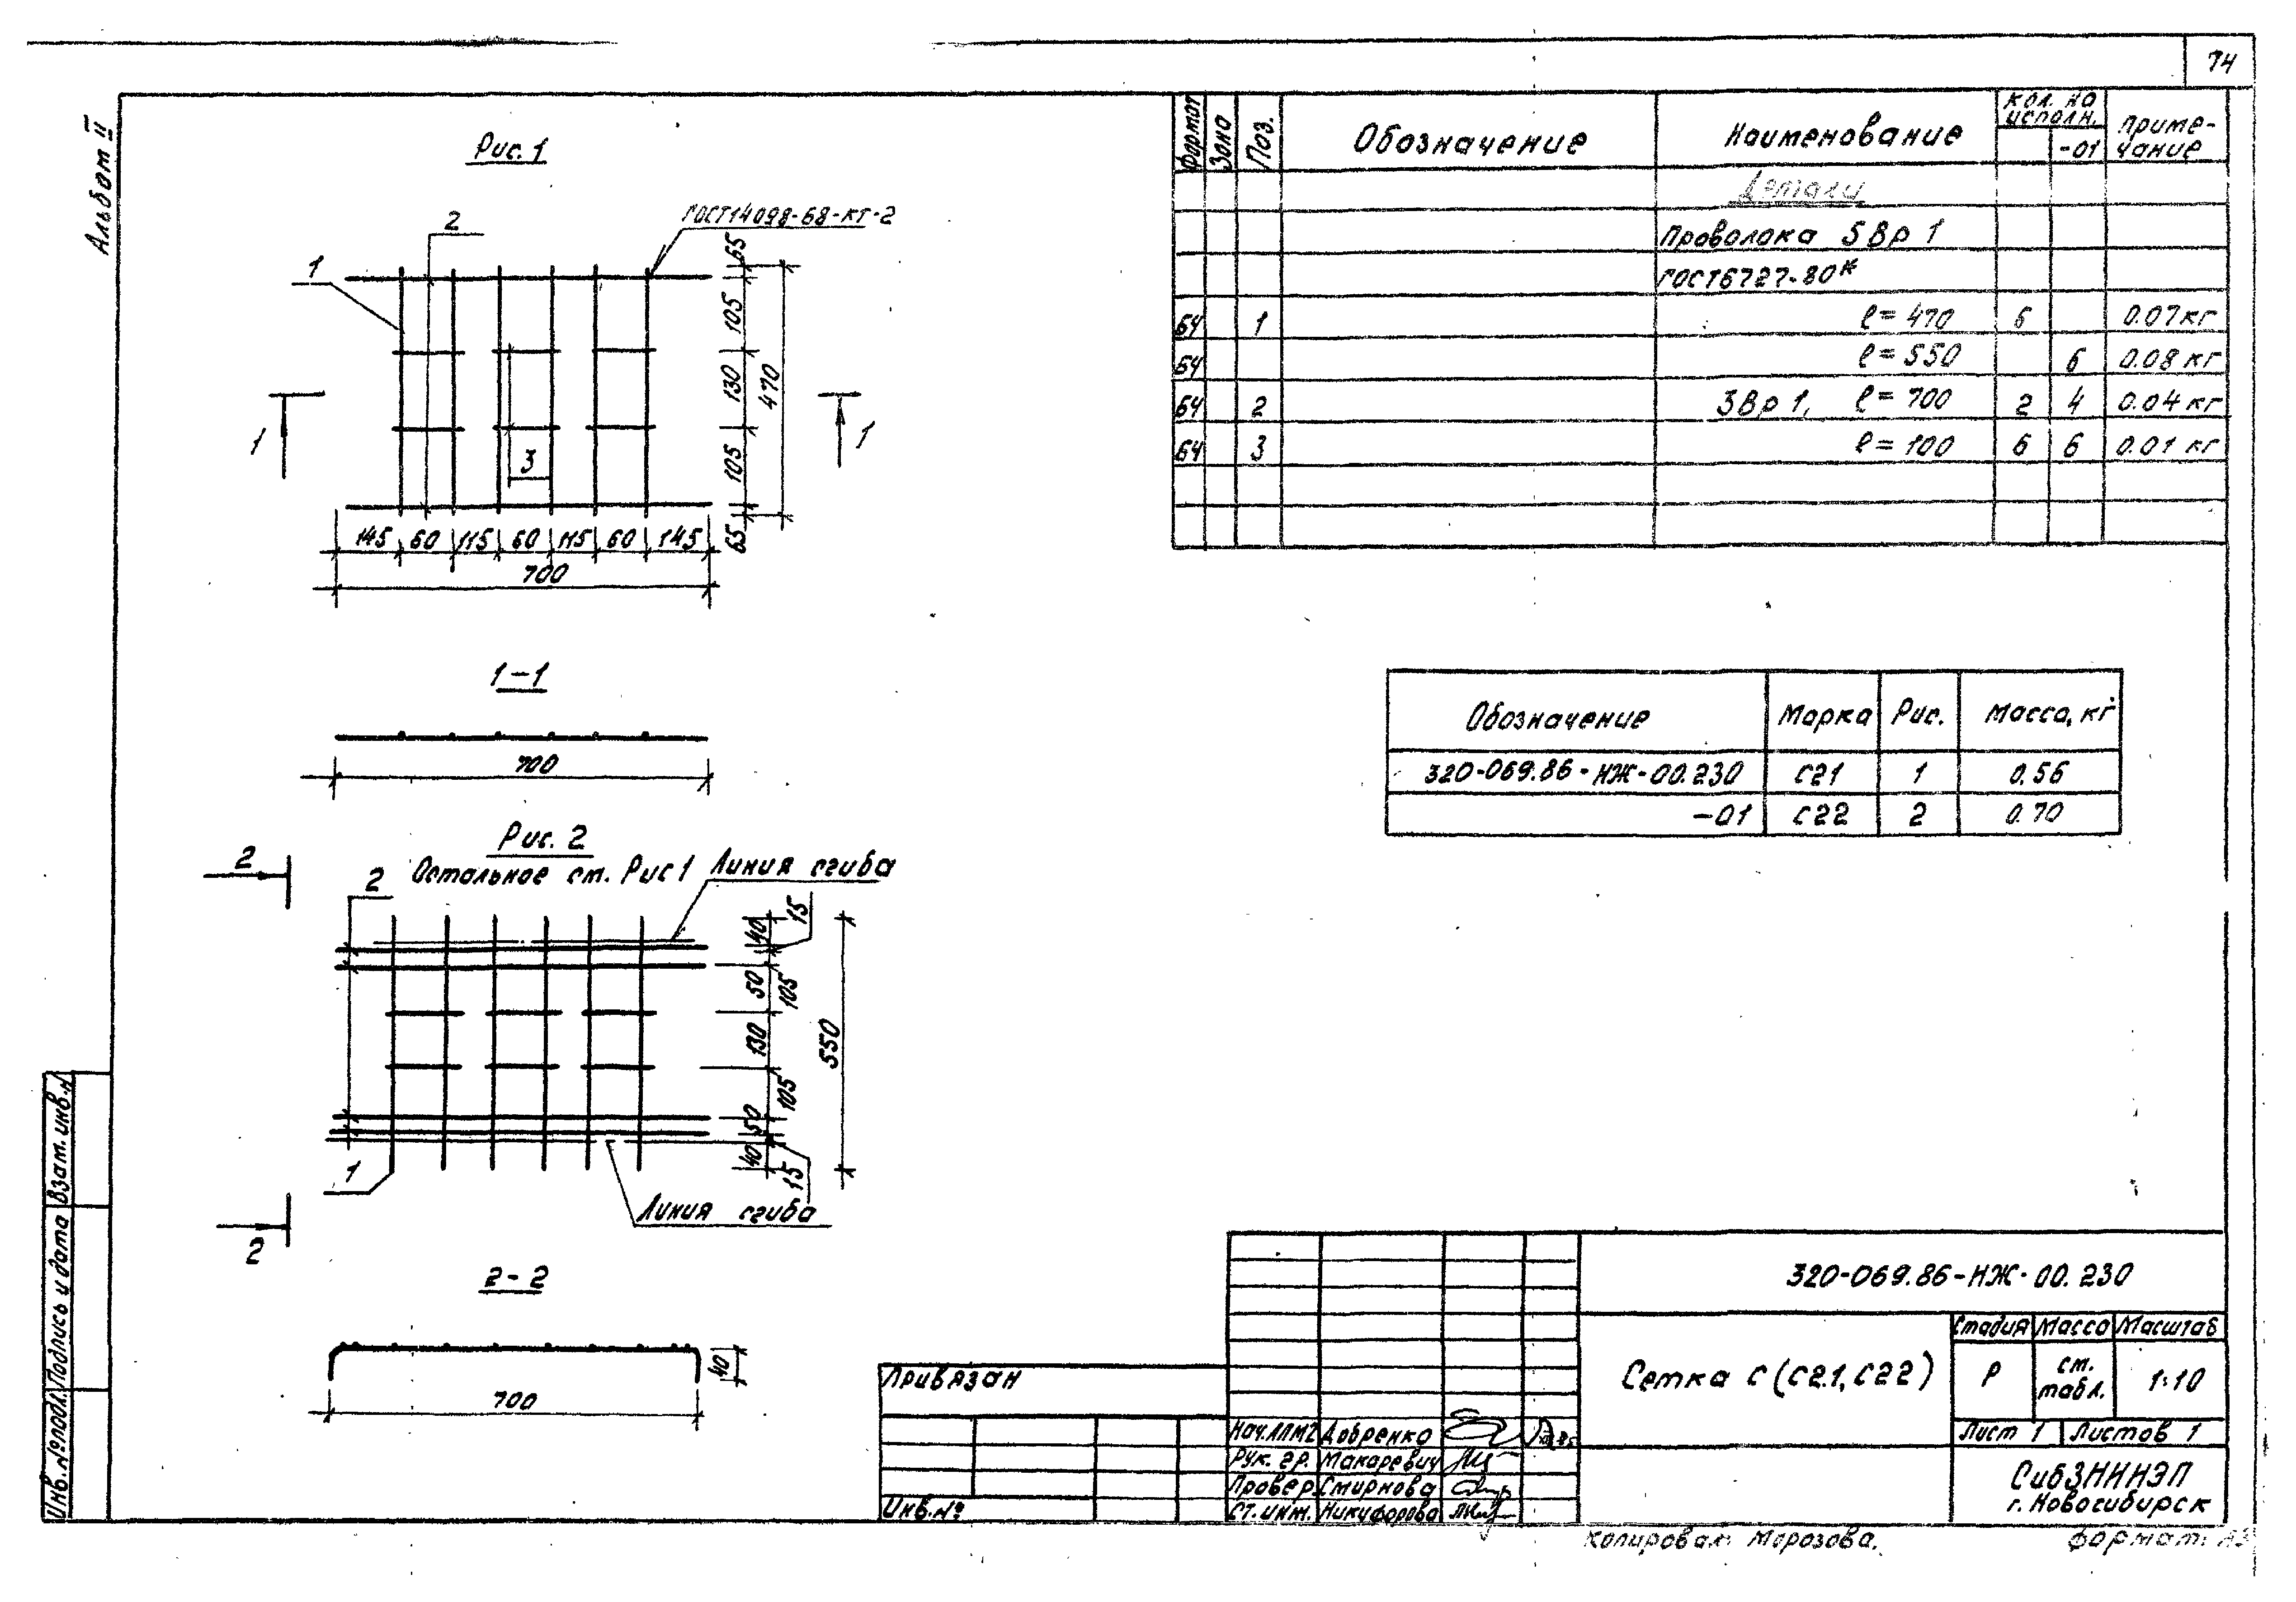 74
Альбом II
Рис. 1
ГОСТ14098-68-КТ-2
2
1
3
65
105
130
105
65
470
1
1
145 60 115 60 115 60 145
700
1-1
700
Рис. 2
Остальное см. Рис 1
Линия сгиба
2
2
40
15
50
105
130
105
50
40
15
550
1
Линия сгиба
2
2-2
40
700
Формат Зона Поз. Обозначение Наименование Кол. на исполн. Приме-
-01 чание
Детали
Проволока 5Вр 1
ГОСТ6727-80*
БЧ 1 ℓ= 470 6 0.07 кг
БЧ ℓ= 550 6 0.08 кг
БЧ 2 3Вр 1, ℓ= 700 2 4 0.04 кг
БЧ 3 ℓ= 100 6 6 0.01 кг
Обозначение Марка Рис. Масса, кг
320-069.86-НЖ-00.230 С21 1 0.56
-01 С22 2 0.70
320-069.86-НЖ-00.230
Сетка С (С21, С22)
Стадия Масса Масштаб
Р см. табл. 1:10
Лист 1 Листов 1
СибЗНИИЭП
г. Новосибирск
Привязан
Инв.№
Нач.АПМ2 Добренко
Рук. гр. Макаревич
Провер. Смирнова
Ст. инж. Никифорова
Инв.№подл. Подпись и дата Взам. инв.№
Копировал: Морозова.
Формат: А3